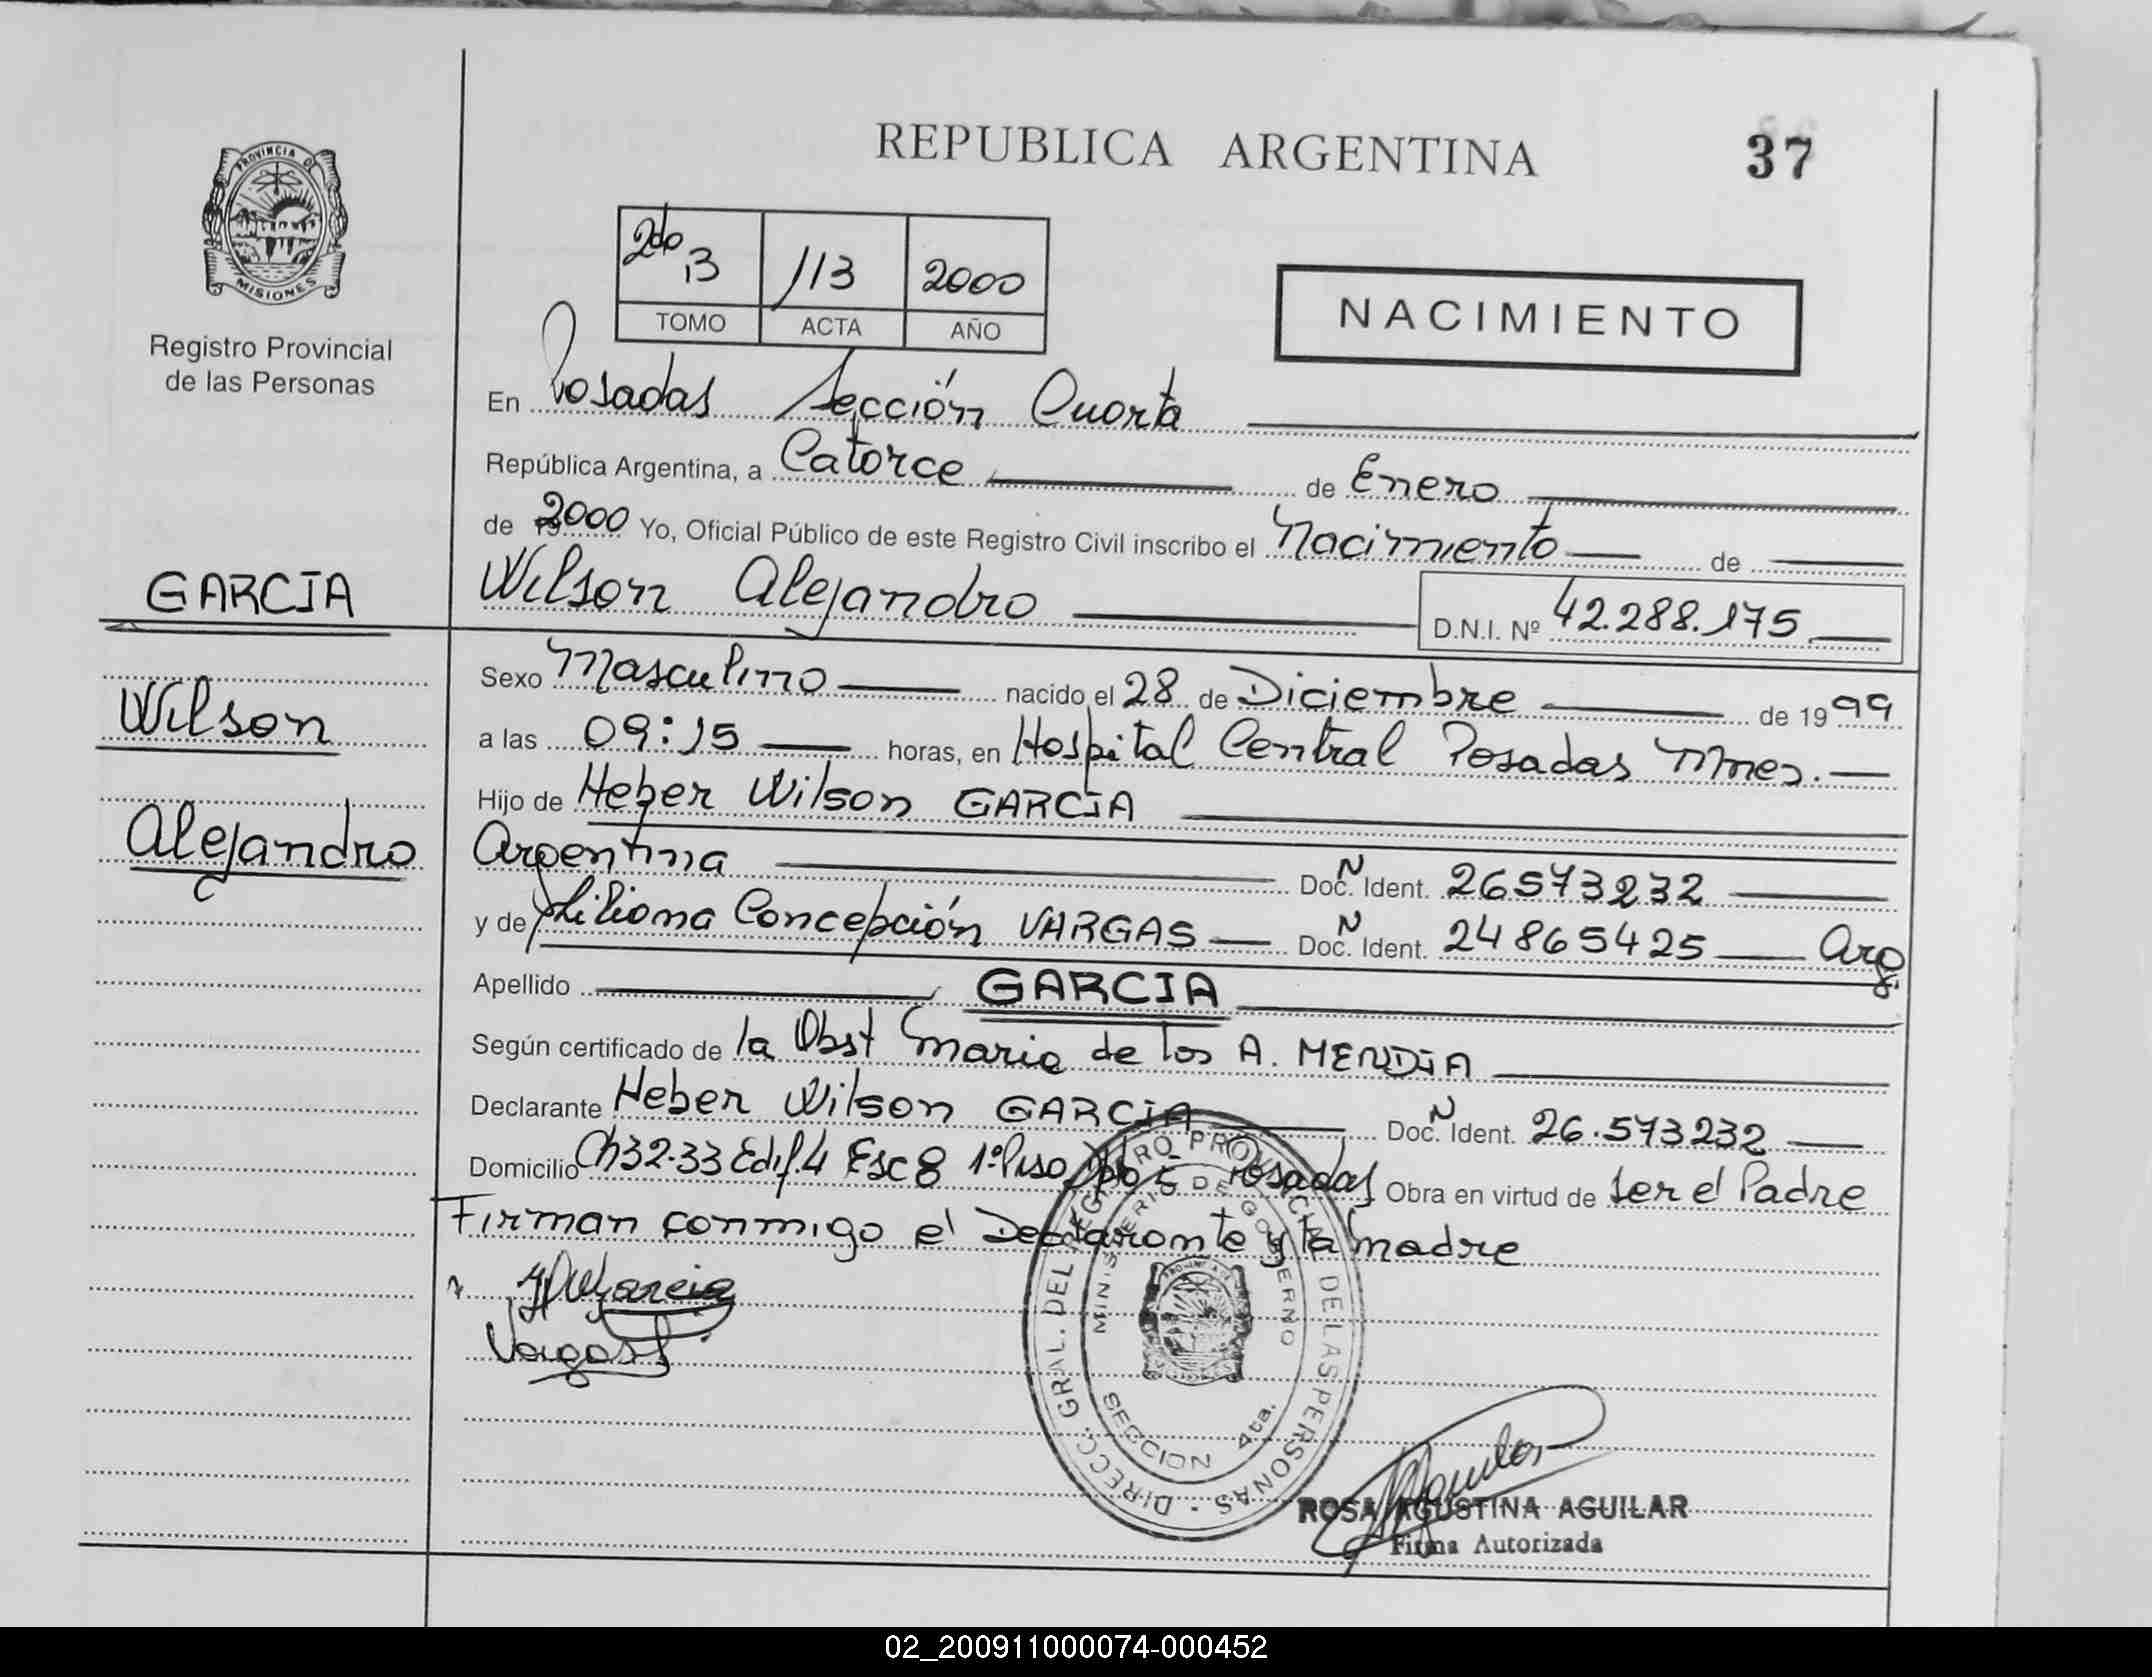 REPUBLICA ARGENTINA
37
PROVINCIA DE
MISIONES
Registro Provincial
de las Personas
2do B 113 2000
TOMO ACTA AÑO
NACIMIENTO
En Posadas Sección Cuarta
República Argentina, a Catorce de Enero
de 2000 Yo, Oficial Público de este Registro Civil inscribo el Nacimiento de
GARCIA
Wilson
Alejandro
Wilson Alejandro D.N.I. Nº 42.288.175
Sexo Masculino nacido el 28 de Diciembre de 1999
a las 09:15 horas, en Hospital Central Posadas Mnes.
Hijo de Heber Wilson GARCIA
Argentina Doc. N Ident. 26573232
y de Liliana Concepción VARGAS Doc. N Ident. 24865425 Arg
Apellido GARCIA
Según certificado de la Obst Maria de los A. MENDIA
Declarante Heber Wilson GARCIA Doc. N Ident. 26.573232
Domicilio Ch32-33 Edif.4 Esc 8 1º Piso Dpto 5 Posadas Obra en virtud de ser el Padre
Firman conmigo el Declarante y la madre
Garcia
Vargas
DIRECC. GRAL. DEL REGISTRO PROVINCIAL DE LAS PERSONAS
MINISTERIO DE GOBIERNO
SECCION 4ta.
ROSA AGUSTINA AGUILAR
Firma Autorizada
02_200911000074-000452